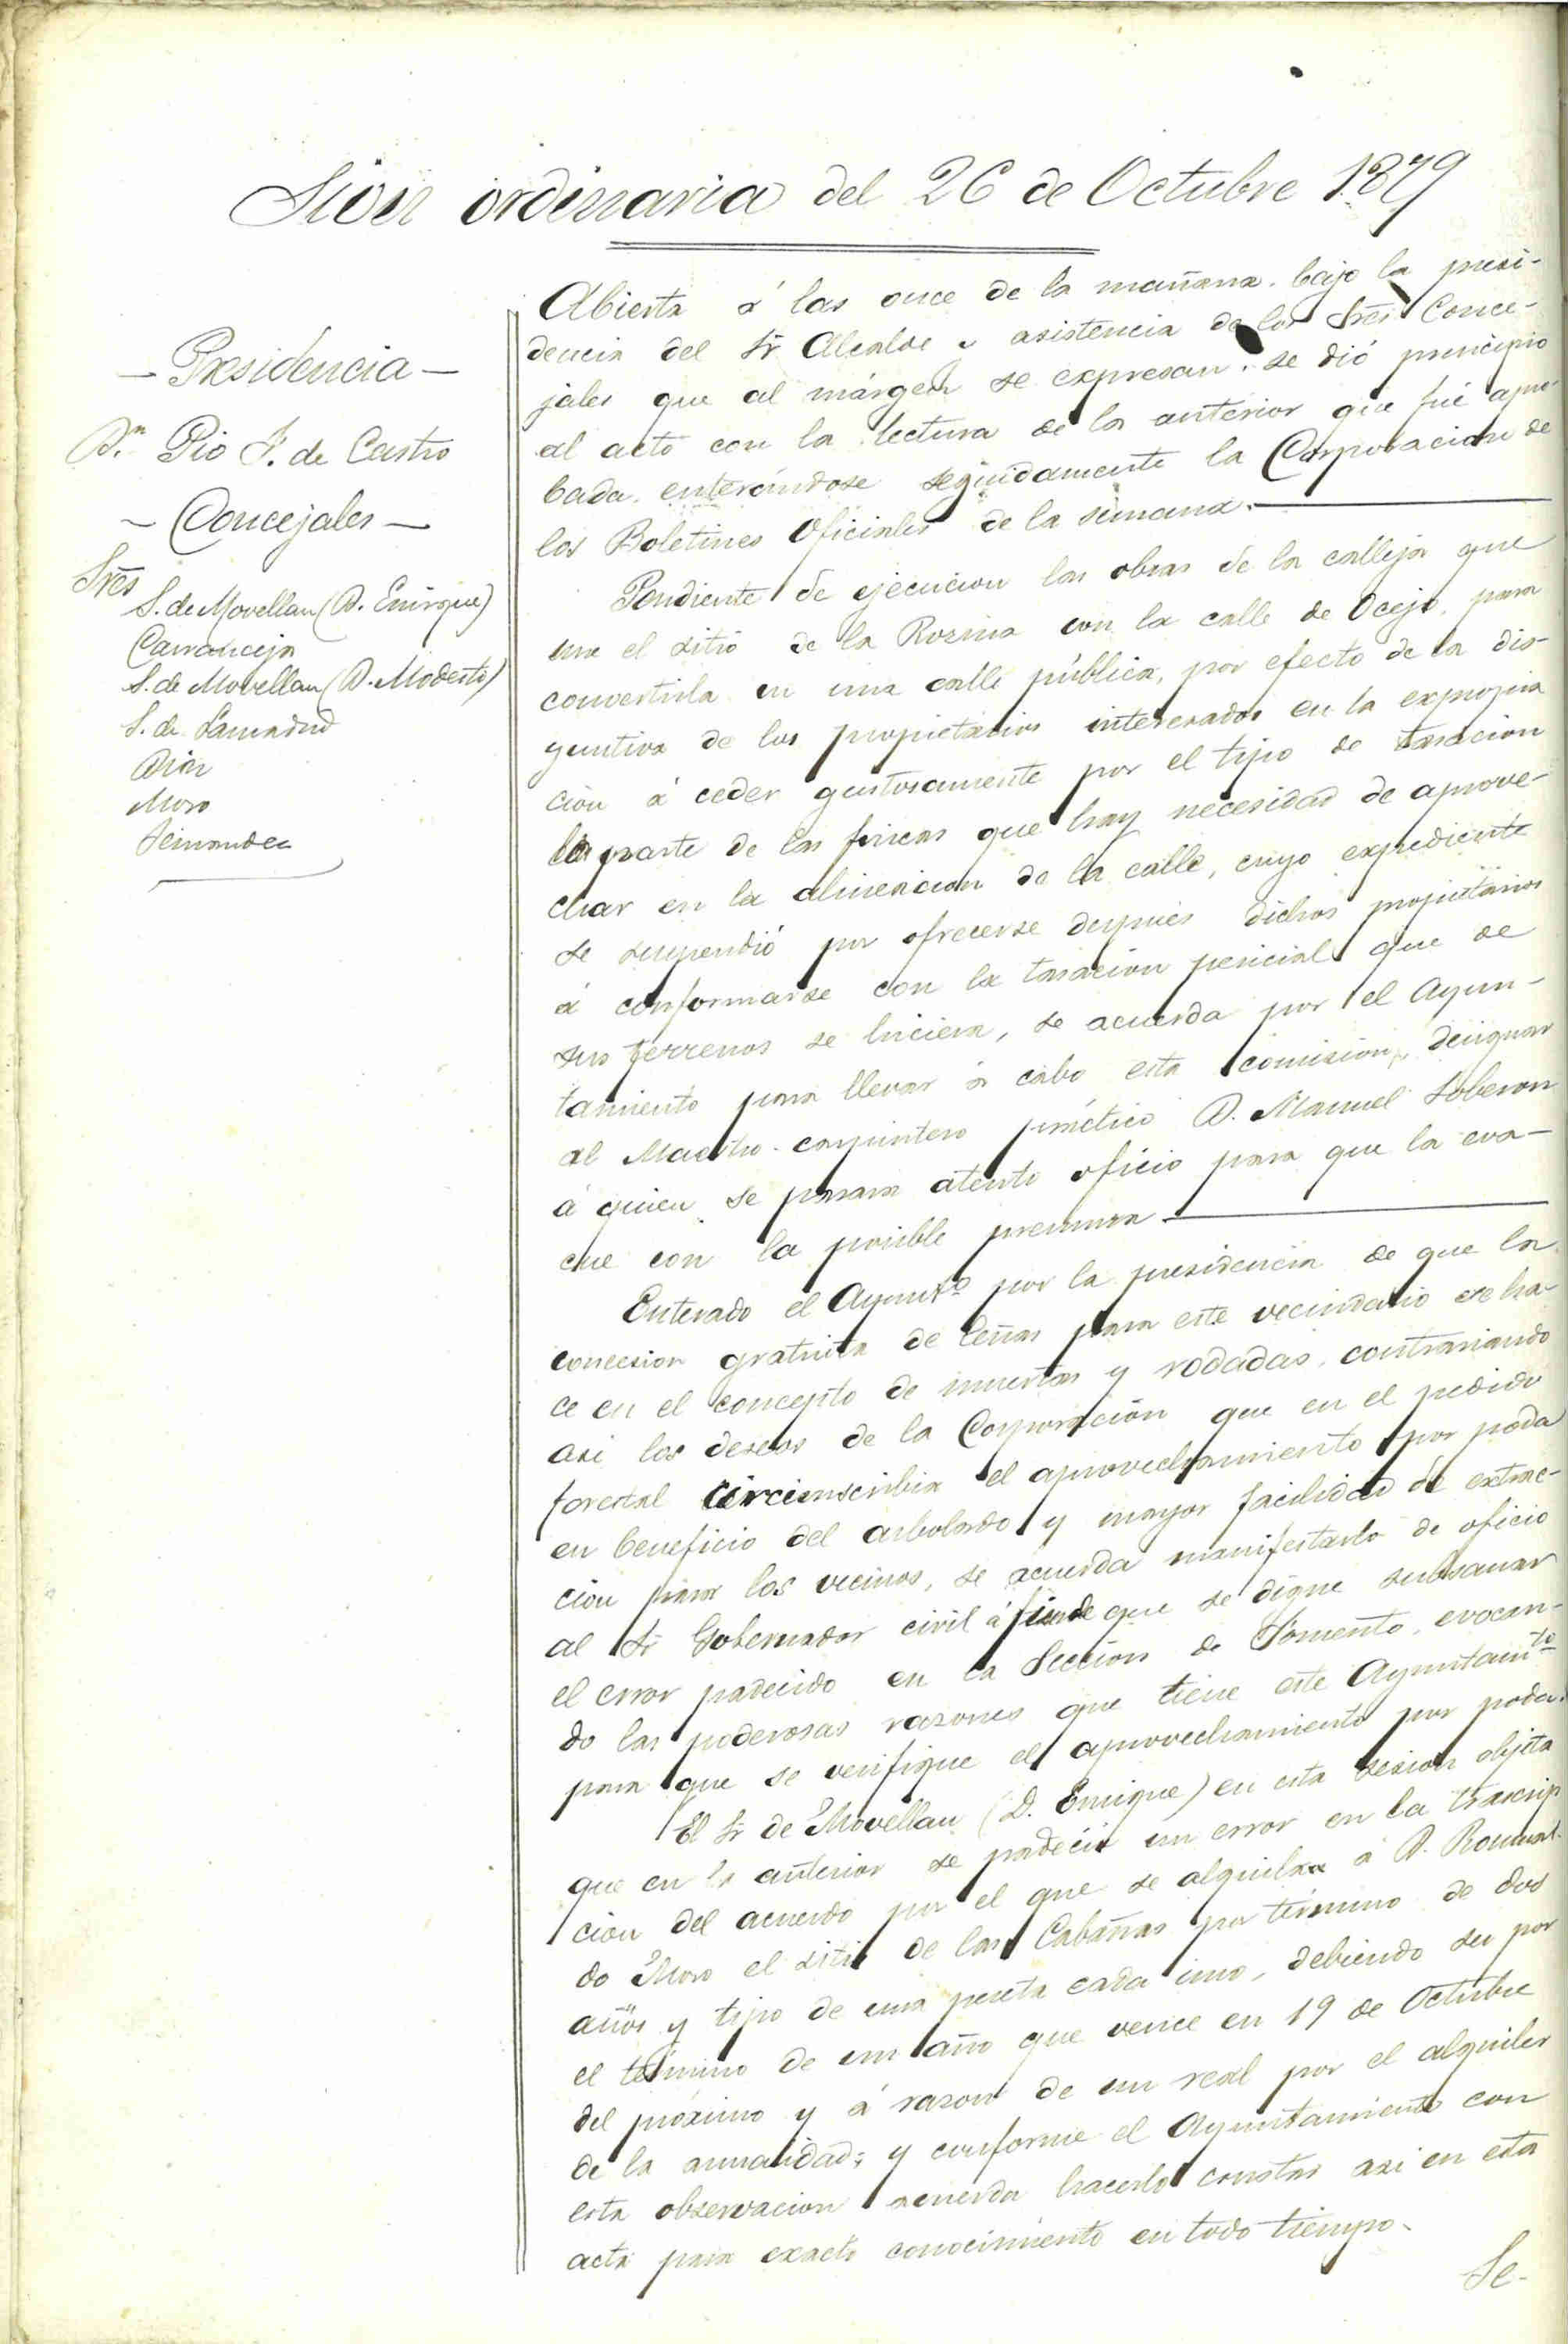 Sion ordinaria del 26 de Octubre 1879
— Presidencia —
Dn. Pio F. de Castro
— Concejales —
Sres
S. de Movellan (D. Enrique)
Carranceja
S. de Movellan (D. Modesto)
S. de Lamadrid
Diaz
Moro
Fernandez
Abierta á las once de la mañana bajo la presi-
dencia del Sr Alcalde y asistencia de los Sres Conce-
jales que al márgen se expresan, se dió principio
al acto con la lectura de la anterior que fué apro-
bada, enterándose seguidamente la Corporacion de
los Boletines Oficiales de la semana.
Pendiente de ejecucion las obras de la calleja que
une el sitio de la Rozina con la calle de Ocejo, para
convertirla en una calle pública, por efecto de la dis-
yuntiva de los propietarios interesados en la expropia
cion á ceder gustosamente por el tipo de tasacion
la parte de las fincas que hay necesidad de aprove-
char en la alineacion de la calle, cuyo expediente
se suspendió por ofrecerse despues dichos propietarios
á conformarse con la tasacion pericial que de
sus terrenos se hiciera, se acuerda por el Ayun-
tamiento para llevar á cabo esta comision, designar
al Maestro carpintero práctico D. Manuel Soberon
á quien se pasara atento oficio para que la eva-
cue con la posible premura
Enterado el Ayunto por la presidencia de que la
concesion gratuita de leñas para este vecindario se ha-
ce en el concepto de muertas y rodadas, contrariando
asi los deseos de la Corporacion que en el pedido
forestal circunscribia el aprovechamiento por poda
en beneficio del arbolado y mayor facilidad de extrac-
cion para los vecinos, se acuerda manifestarlo de oficio
al Sr Gobernador civil á fin de que se digne subsanar
el error padecido en la Seccion de Fomento, evocan-
do las poderosas razones que tiene este Ayuntamto
para que se verifique el aprovechamiento por poda.
El Sr de Movellan (D. Enrique) en esta sesion objeta
que en la anterior se padeció un error en la trascrip
cion del acuerdo por el que se alquila á D. Romual-
do Moro el sitio de las Cabañas por término de dos
años y tipo de una peseta cada uno, debiendo ser por
el término de un año que vence en 19 de Octubre
del próximo y á razon de un real por el alquiler
de la anualidad; y conforme el Ayuntamiento con
esta observacion acuerda hacerlo constar asi en esta
acta para exacto conocimiento en todo tiempo.
Se-